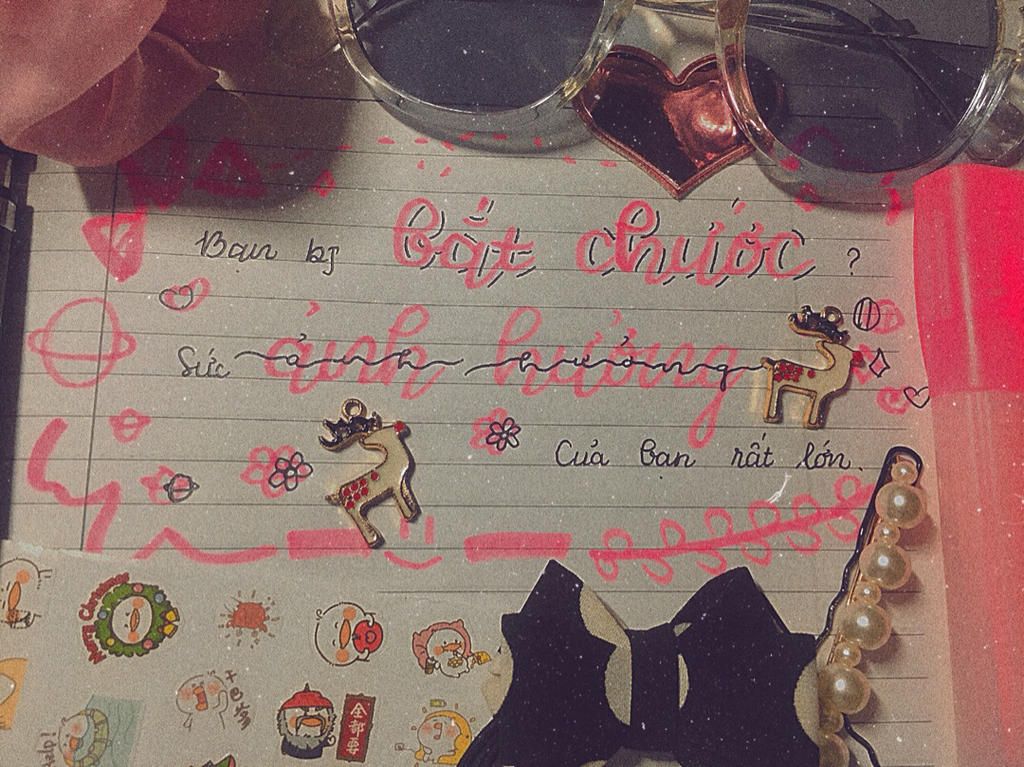 Bạn bị bắt chước ?
Sức ảnh hưởng
Của bạn rất lớn.
Merry Christmas
全部要
Help!